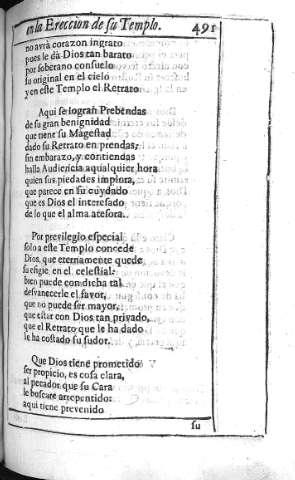 en la Ereccion de su Templo. 491
no avrà corazon ingrato
pues le dà Dios tan barato
por soberano consuelo
su original en el cielo
y en este Templo el Retrato
Aqui se logran Prebendas
de su gran benignidad
que tiene su Magestad
dado su Retrato en prendas,
sin embarazo, y contiendas
halla Audiencia aqualquier hora
quien sus piedades implora,
que parece en su cuydado
que es Dios el interesado
de lo que el alma atesora.
Por previlegio especial
solo a este Templo concede
Dios, que eternamente quede
su efigie, en el celestial:
bien puede con dicha tal
desvanecerle el favor,
que no puede ser mayor,
que estar con Dios tan privado,
que el Retrato que le ha dado
le ha costado su sudor.
Que Dios tiene prometido
ser propicio, es cosa clara,
al pecador que su Cara
le buscare arrepentido:
aqui tiene prevenido
su